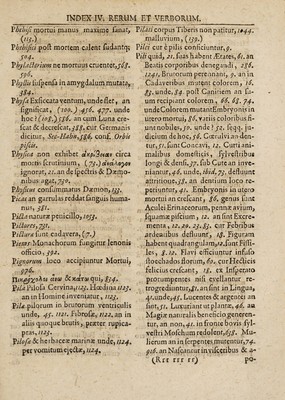 INDEX IV. RERUM ET VERBORUM.
Phthisi mortui manus maxime sanæ,
513.
Phthisici post mortem calent sudantq;
504.
Phylacterium ne mortuus cruentet, 585.
596.
Phyllis suspensa in amygdalum mutata,
384.
Physa Exsiccata ventum, unde flet, an
significat, (100.) 456. 477. unde
hoc? (105.) 556. an cum Luna cre-
scat & decrescat, 358. cur Germanis
dicitur, See-Hahn, 586. conf. Orbis
piscis.
Physica non exhibet circa
mortis scrutinium, (73.)
ignorat, 21. an de spectris & Dæmo-
nibus agat, 575.
Physicus consummatus Dæmon, 133.
Picas an garrulus reddat sanguis huma-
nus, 361.
Picta naturæ penicillo, 1053.
Pictores, 731.
Pictura sunt cadavera, (7.)
Pierre Monachorum fungitur lenonis
officio, 592.
Pignorum loco accipiuntur Mortui,
976.
qui, 854.
Pila Pilosa Cervina, 1123. Hœdina 1123.
an in Homine inveniatur, 1123.
Pila pilorum in brutorum ventriculis
unde, 45. 1121. Fibrosæ, 1122. an in
aliis quoque brutis, præter rupica-
pras, 1123.
Pilosæ & herbaceæ marinæ unde, 1124.
per vomitum ejectæ, 1124.
Pilati corpus Tiberis non patitur, 1044.
malluvium, (139.)
Pilei cur è pilis conficiuntur, 9.
Pili quid, 21. suas habent Ætates, 61. an
Beatis corporibus denegandi, 286.
1241, Bruorum perennant, 9. an in
Cadaveribus mutent colorem, 16.
83. unde, 84. post Canitiem an su-
um recipiant colorem, 16. 68. 74.
unde Colorem mutant Embryonis in
utero mortui, 86. variis coloribus fi-
unt nobiles, 50. unde? 52. seqq. ju-
dicium de hoc, 56. Corvalvi an den-
tur, 51. sunt Concavi, 12. Curti ani-
malibus domesticis, sylvestribus
longi & densi, 37. sub Cute an inve-
niantur, 46. unde, ibid, 73. destituunt
attritione, 38. an dentium loco re-
periuntur, 41. Embryonis in utero
mortui an crescant, 86. genus sunt
Aculei Erinaceorum, pennæ avium,
squamæ piscium, 12. an sint Excre-
menta, 12. 20. 23. 83. cur Febribus
ardentibus defluunt, 18. Figuram
habent quadrangulam, 12. sunt Fissi-
les, 8. 12. Flavi efficiuntur infuso
florchados florum, 60. cur Hecticis
felicius crescant, 18. ex Insperato
prorumpentes nisi evellantur re-
trogreduuntur, 81. an sint in Lingua,
41. unde, 45. Lucentes & argentei an
sint, 51. Luxuriant ut plantæ, 46. an
Magiæ naturalis beneficio generen-
tur, an non, 41. in fronte bovis syl-
vestri Moschum redolent, 635. Mu-
lierum an in serpentes mutentur, 74.
916. an Nascantur in visceribus & a-
(Rrr rrr rr) po-